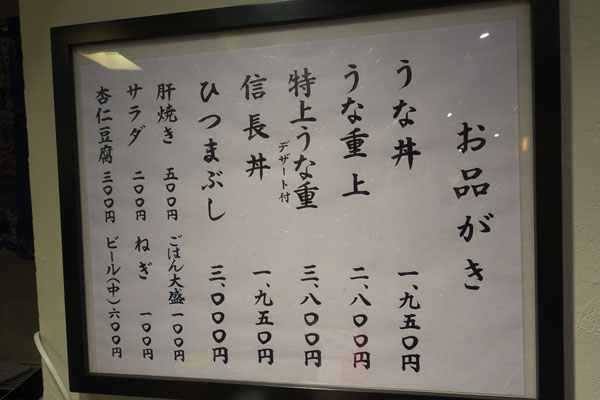 お品がき
うな丼 一、九五〇円
うな重上 二、八〇〇円
特上うな重 デザート付 三、八〇〇円
信長丼 一、九五〇円
ひつまぶし 三、〇〇〇円
肝焼き 五〇〇円
ごはん大盛 一〇〇円
サラダ 二〇〇円
ねぎ 一〇〇円
杏仁豆腐 三〇〇円
ビール(中) 六〇〇円